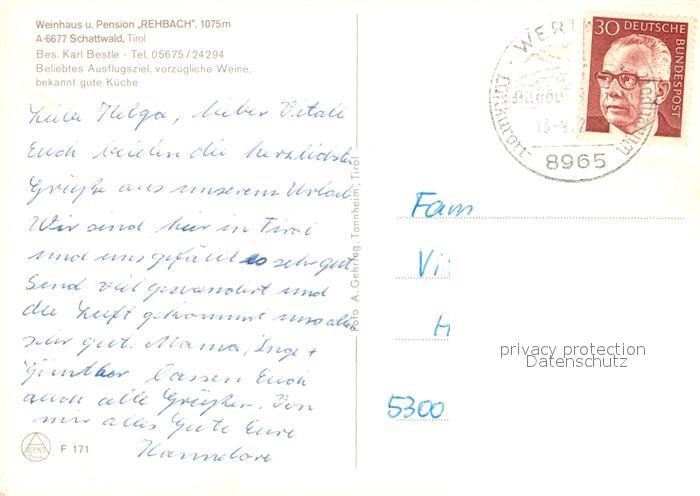 Weinhaus u. Pension „REHBACH”, 1075m
A-6677 Schattwald, Tirol
Bes. Karl Bestle - Tel. 05675/24294
Beliebtes Ausflugsziel, vorzügliche Weine,
bekannt gute Küche
Liebe Helga, lieber Vitali
Euch beiden die herzlichsten
Grüße aus unserem Urlaub
Wir sind hier in Tirol
und uns gefällt es sehr gut.
Sind viel gewandert und
die Luft bekommt uns allen
sehr gut. Mama, Inge +
Günther lassen Euch
auch alle Grüßen. Von
mir alles Gute Eure
Hannelore
F 171
Foto A. Gehring, Tannheim, Tirol
WERT
Allgäu
8965
30 DEUTSCHE BUNDESPOST
Fam
Vi
H
5300
privacy protection
Datenschutz